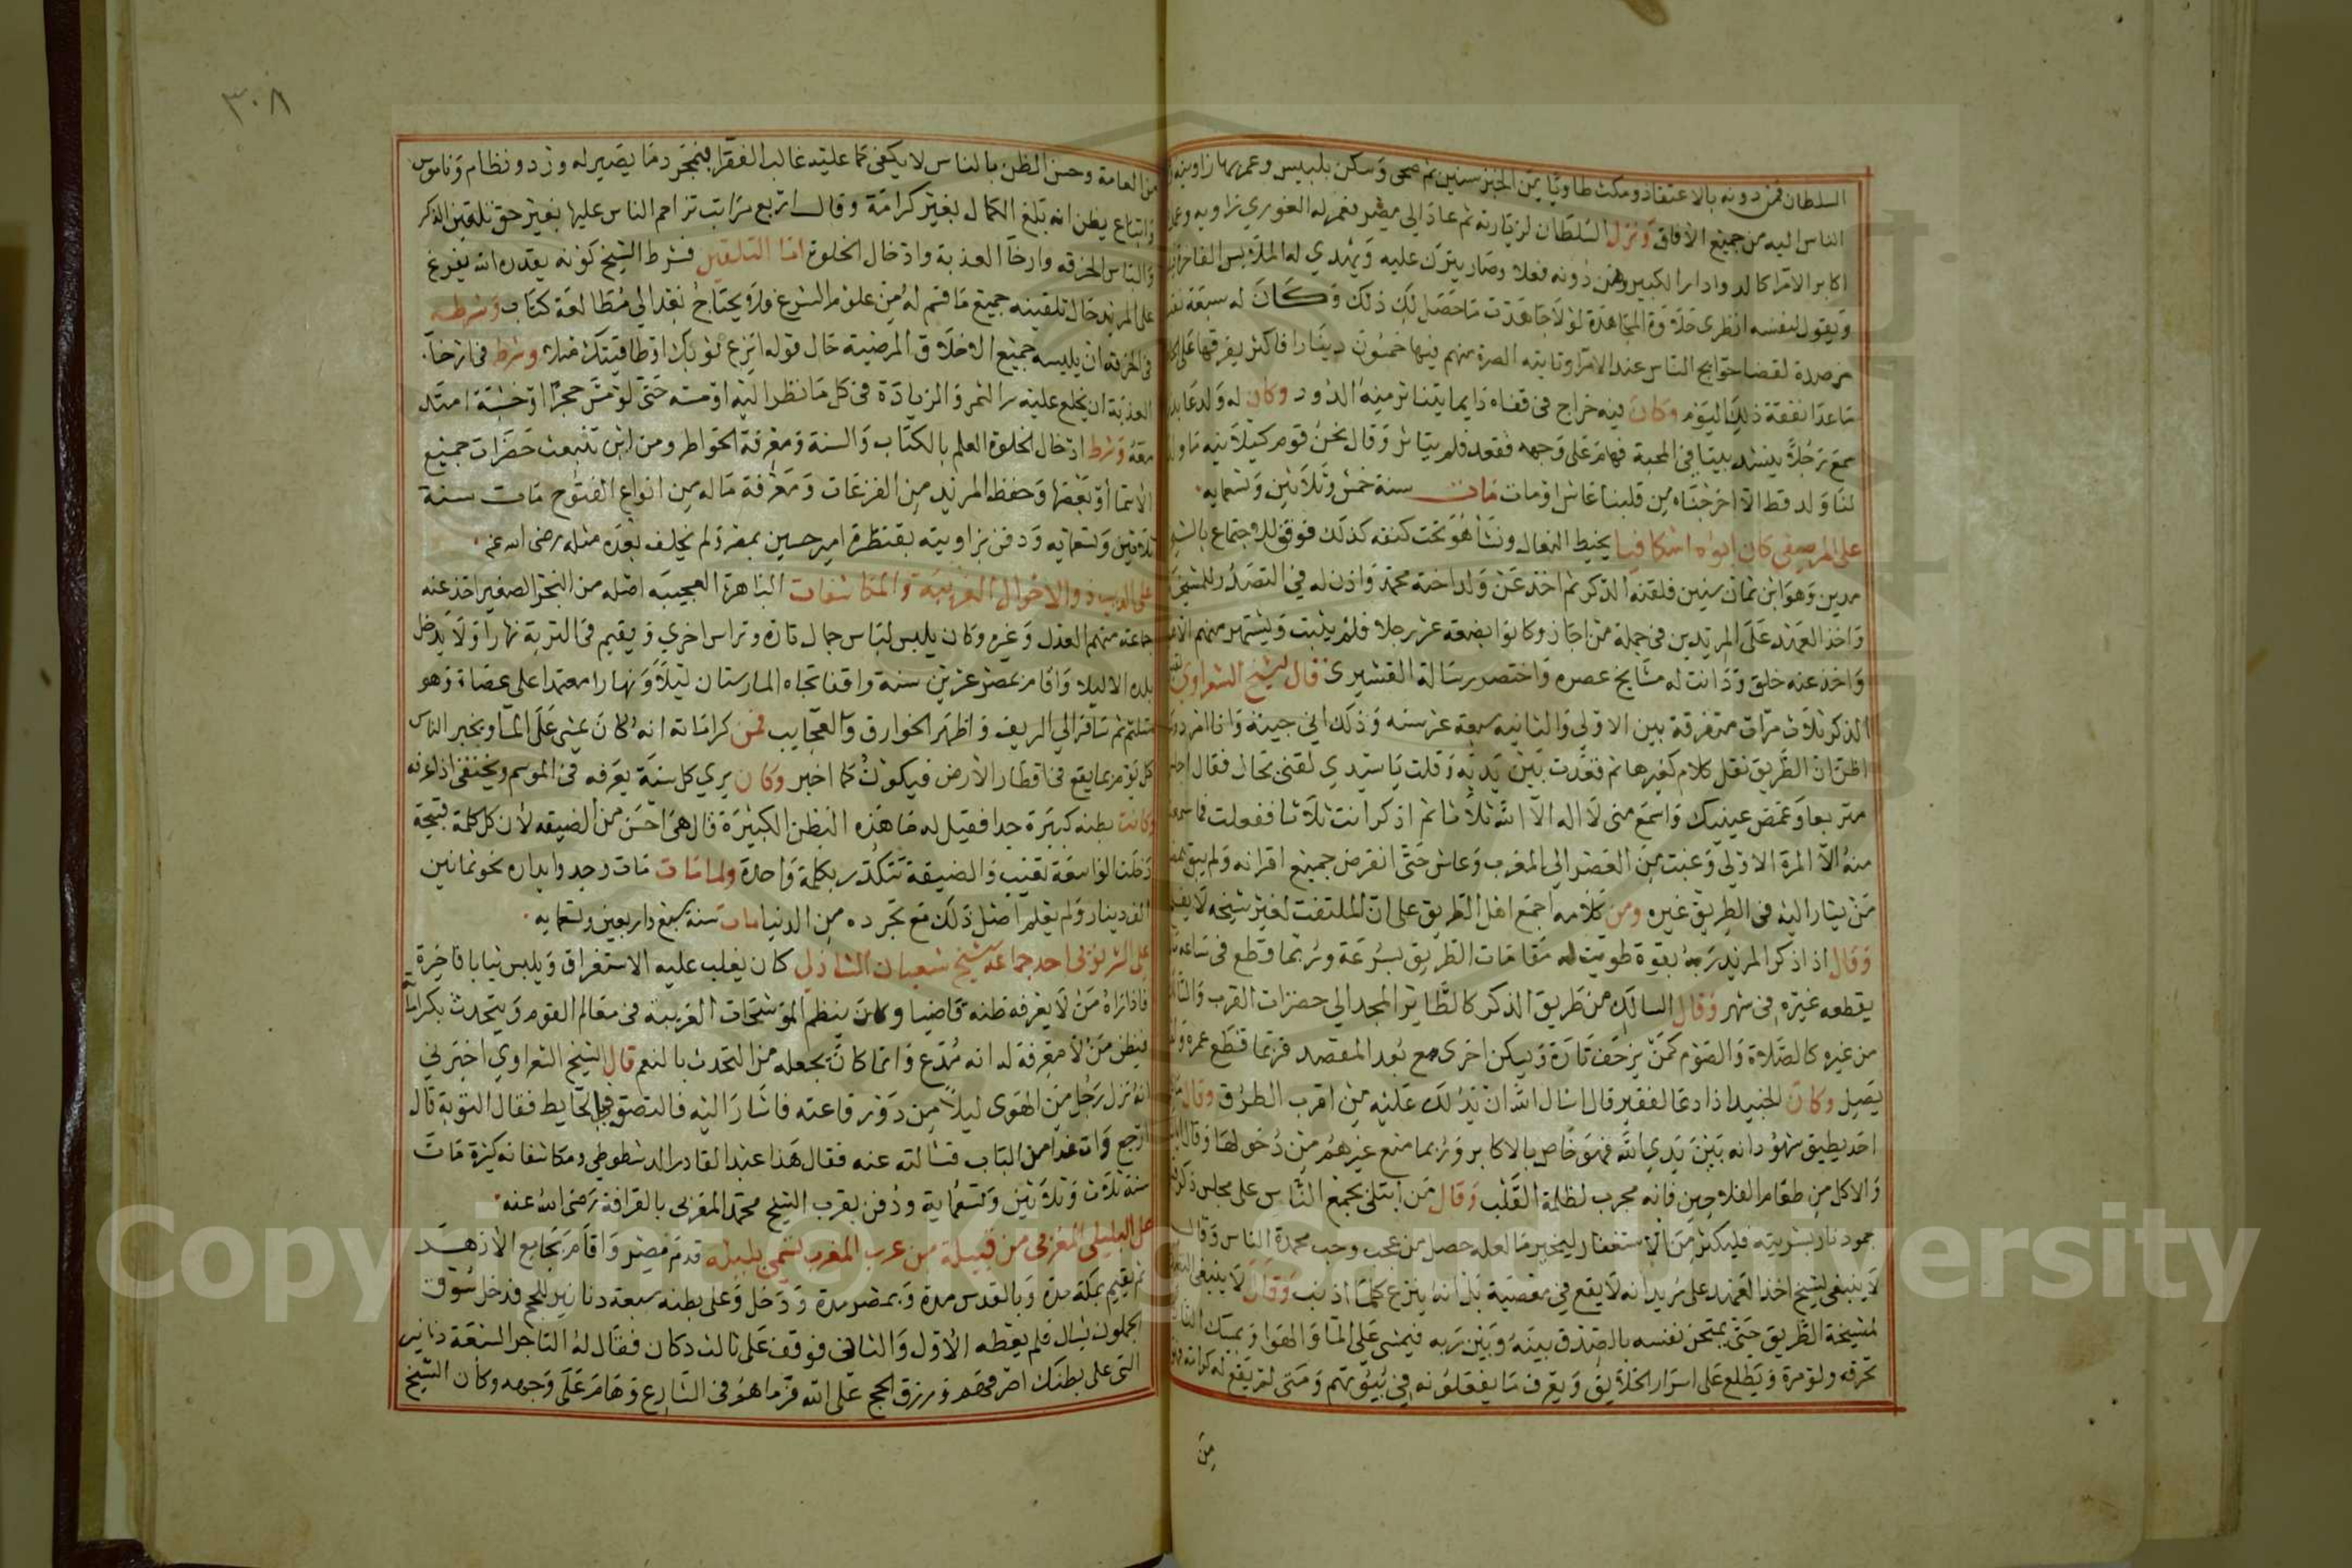 السلطان فمن دونه بالاعتقاد ومكث طاويا يمن الجنز سنين ثم صحى وسكن بلبيس وعمر بها زاوية
الناس اليه من جميع الافاق ونزل السلطان لزيارته ثم عاد الى مصر فعمر له الغوري زاويه
اكابر الامرا كالدوادار الكبير وفمن دونه فعلا وصار يترك عليه ويهدي له الملابس الفاخرة
ويقول لنفسه انظري حلاوة المجاهدة لولا جاهدت ما حصل لك ذلك وكان له سبعة
مرصدة لقضا حوايج الناس عند الامرا وتاتيه الصرة منهم فيها خمسون دينارا فاكثر يفرقها على
نفقة ذلك اليوم وكان فيه خراج في قفاه دايما يتناثر منه الدود وكان له ولد
سمع رجلا ينشد بيتا في المحبة فهام على وجهه ففقد فلم يتاثر وقال نحن قوم
لنا ولد قط الا اخرجناه من قلبنا عاش او مات مات سنة خمس وثلاثين وتسعمايه
على المرصفى كان ابواه اسكافيا يخيط النعال ونشا هو تحت كنفه كذلك فوفق للاجتماع
مدين وهو ابن ثمان سنين فلقنه الذكر ثم اخذ عن ولد اخته محمد واذن له في التصدر للمشيخة
واخذ العهد على المريدين في جملة من اجاز وكانوا بضعة عشر رجلا فلم يثبت ويشتهر منهم
واخذ عنه خلق ودانت له مشايخ عصره واختصر رسالة القشيري قال الشيخ الشعراوي
الذكر ثلاث مرات متفرقة بين الاولى والثانيه سبعة عشر سنه وذلك اني جيته وانا امرد
اظن ان الطريق نقل كلام كغيرها ثم قعدت بين يديه وقلت يا سيدي لقنى بحال فقال
متربعا وغمض عينيك واسمع منى لا اله الا الله ثلاثا ثم اذكر انت ثلاثا ففعلت فما سمعت
منه الا المرة الاولى وغبت من العصر الى المغرب وعاش حتى انقرض جميع اقرانه ولم يبق
من يشار اليه في الطريق غيره ومن كلامه اجمع اهل الطريق على ان الملتفت لغير شيخه لا يفلح
وقال اذا ذكر المريد ربه بقوة طويت له مقامات الطريق بسرعة وربما قطع في ساعة
يقطعه غيره في شهر وقال السالك من طريق الذكر كالطاير المجد الى حضرات القرب
من غيره كالصلاة والصوم كمن يزحف تارة ويسكن اخرى مع بعد المقصد فربما قطع عمره
يصل وكان الجنيد اذا دعا لفقير قال اسال الله ان يدلك عليه من اقرب الطرق وقال
احد يطيق شهود انه بين يدي الله فهو خاص بالاكابر وربما منع غيرهم من دخولها وقال
والاكل من طعام الفلاحين فانه مجرب لظلمة القلب وقال من ابتلى بجمع الناس على مجلس ذكر
جمود نار بشريته فليكثر من الاستغفار ليجبر ما لعله حصل من عجب وحب محمدة الناس وقال
لا ينبغى لشيخ اخذ العهد على مريد انه لا يقع في معصية بل انه ينزع كلما اذنب وقال لا ينبغي
لمشيخة الطريق حتى يمتحن نفسه بالصدق بينه وبين ربه فيمشى على الما والهوا ويمسك النار
تحرقه ولو مرة ويطلع على اسرار الخلايق ويعرف ما يفعلونه في بيوتهم ومتى لم يقع له
من
٣٠٨
من العامة وحسن الظن بالناس لا يكفى مما عليه غالب الفقرا فبمجرد ما يصير له ورد ونظام وناموس
واتباع يظن انه بلغ الكمال بغير كرامة وقال اربع مراتب تزاحم الناس عليها بغير حق تلقين الذكر
والباس الخرقه وارخا العذبة وادخال الخلوة اما التلقين فشرط الشيخ كونه يقدره الله يفرغ
على المريد حال تلقينه جميع ما قسم له من علوم الشرع فلا يحتاج بعد الى مطالعة كتاب وشرطه
في الخرقه ان يلبسه جميع الاخلاق المرضية حال قوله انزع ثوبك او طاقيتك وشرط في ارخا
العذبة ان يخلع عليه سر النمو والزيادة في كل ما نظر اليه او مسه حتى لو مس حجرا او خشبة امتد
معه وشرط ادخال الخلوة العلم بالكتاب والسنة ومعرفة الخواطر ومن اين تنبعث حضرات جميع
الاسما او بعضها وحفظ المريد من النزغات ومعرفة ماله من انواع الفتوح مات سنة
ثلاثين وتسعمايه ودفن بزاويته بقنطرة امير حسين بمصر ولم يخلف بعده مثله رضى الله عنه
ذو الاحوال الغريبة والمكاشفات الباهرة العجيبه اصله من البحر الصغير اخذ عنه
جماعة منهم العدل وغيره وكان يلبس لباس جمال تارة وتراس اخري ويقيم في التربة نهارا ولا يدخل
بلده الا ليلا واقام بمصر عشرين سنة واقفا تجاه المارستان ليلا ونهارا معتمدا على عصاة وهو
متلثم ثم سافر الى الريف واظهر الخوارق والعجايب فمن كراماته انه كان يمشى على الما ويخبر الناس
كل يوم بما يقع في اقطار الارض فيكون كما اخبر وكان يري كل سنة يعرفه في الموسم ويختفى اذا عرفه
وكانت بطنه كبيرة جدا فقيل له ما هذه البطن الكبيرة قال هى احسن من الضيقه لان كل كلمة قبيحة
دخلت الواسعة تغيب والضيقة تتكدر بكلمة واحدة ولما مات وجدوا بداره نحو ثمانين
الف دينار ولم يعلم اصل ذلك مع تجرده من الدنيا مات سنة سبع واربعين وتسعمايه
احد جماعة الشيخ شعبان الشاذلي كان يغلب عليه الاستغراق ويلبس ثيابا فاخرة
فاذا راه من لا يعرفه ظنه قاضيا وكان ينظم الموشحات الغريبة في معالم القوم ويتحدث بكراماته
فيظن من لا معرفة له انه مدع وانما كان يجعله من التحدث بالنعم قال الشيخ الشعراوي اخبرني
انه نزل رجل من الهوى ليلا من دور قاعته فاشار اليه فالتصق في الحايط فقال التوبة قال
ارجع وات غدا من الباب فسالته عنه فقال هذا عبد القادر الدشطوطي ومكاشفاته كثيرة مات
سنة ثلاث وثلاثين وتسعماية ودفن بقرب الشيخ محمد المغربى بالقرافة رضى الله عنه
على البلبلى المغربى من قبيلة من عرب المغرب تسمى بلبلة قدم مصر واقام بجامع الازهر
ثم يقيم بمكة مدة وبالقدس مدة وبمصر مدة ودخل وعلى بطنه سبعة دنانير للحج فدخل سوق
الجملون يسال فلم يعطه الاول والثانى فوقف على ثالث دكان فقال له التاجر السبعة دنانير
التى على بطنك اصرفهم ورزق الحج على الله فرماهم في الشارع وهام على وجهه وكان الشيخ
Copyright © King Saud University